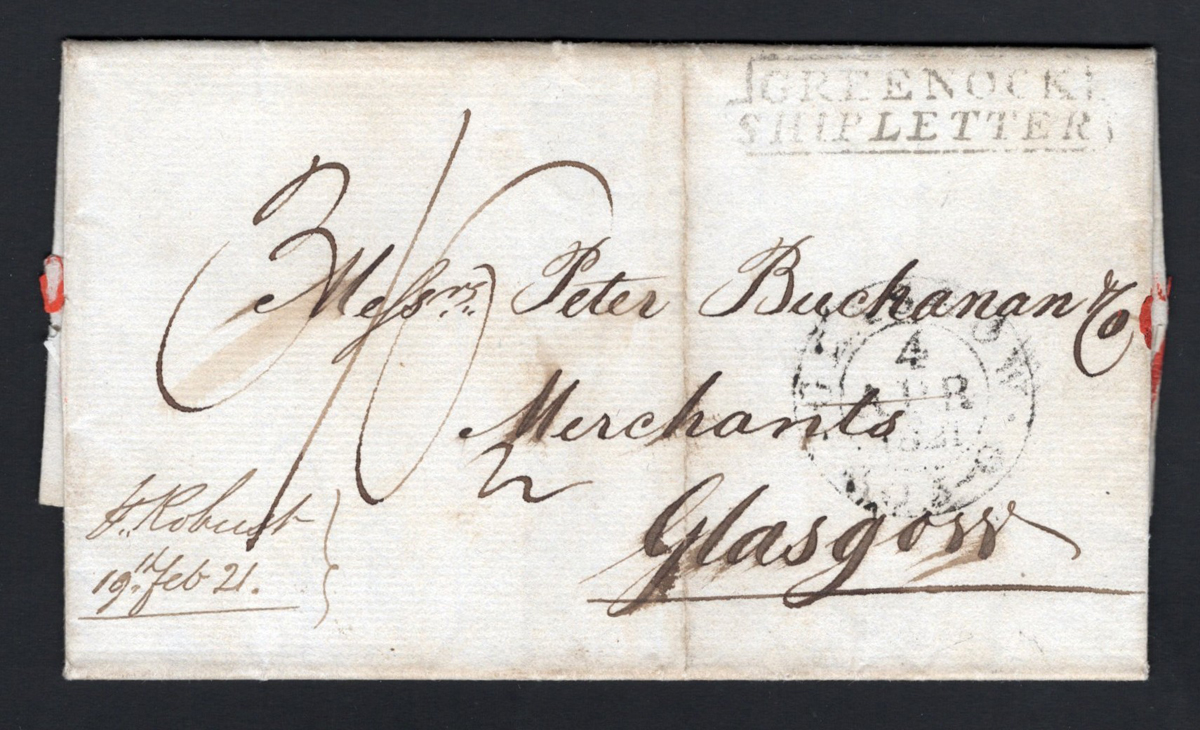 GREENOCK
SHIP LETTER
3/6
Messrs. Peter Buchanan & Co
Merchants
2
Glasgow
4
APR
1821
pr. Robust
19th Feb 21.